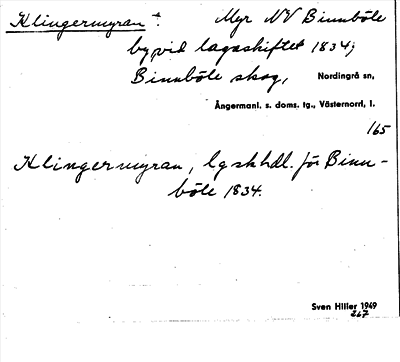 Klingermyran †. Myr NV Binnböle
by vid lagaskiftet 1834;
Binnböle skog, Nordingrå sn,
Ångermanl. s. doms. tg., Västernorrl. l.
165
Klingermyran, lgskhdl. för Binn-
böle 1834.
Sven Hiller 1949
267